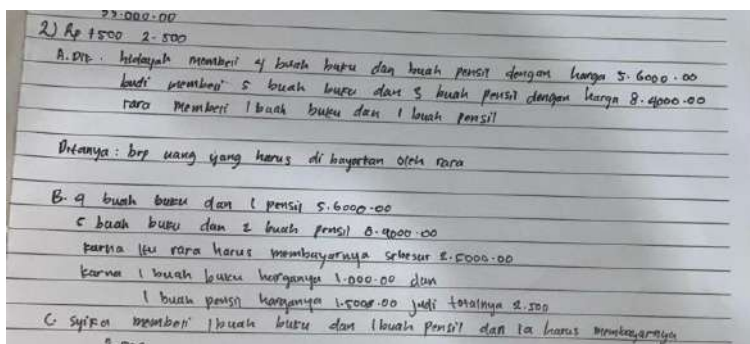 55.000.00
2) Rp 1500 2.500
A. Dit. hidayah memberi 4 buah buku dan buah pensil dengan harga 5.6000.00
budi memberi 5 buah buku dan 3 buah pensil dengan harga 8.4000.00
rara memberi 1 buah buku dan 1 buah pensil
Ditanya : brp uang yang harus di bayarkan oleh rara
B. 4 buah buku dan 1 pensil 5.6000.00
5 buah buku dan 2 buah pensil 8.4000.00
karna itu rara harus membayarnya sebesar 2.5000.00
karna 1 buah buku harganya 1.000.00 dan
1 buah pensil harganya 1.5000.00 jadi totalnya 2.500
C. Syifa memberi 1 buah buku dan 1 buah pensil dan ia harus membayarnya